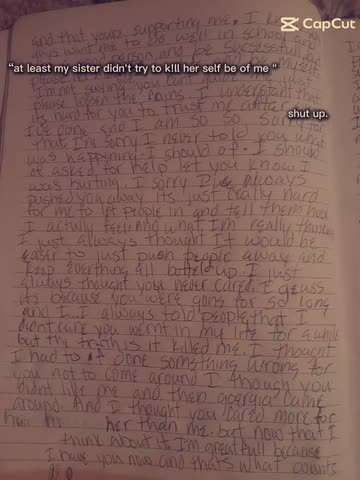 and that your supporting me. I
CapCut
always want me to do well in school and
person and be successful
“at least my sister didn't try to k!ll her self be of me ”
I'm not saying you
please loosen the reins I understand that
its hard for you to trust me after what
shut up.
I've done and I am so so sorry for
that I'm sorry I never told you what
was happening. I should of. I should
of asked for help let you know I
was hurting. I sorry I've always
pushed you away its just really hard
for me to let people in and tell them how
I actully feel. And what I'm really thinking
I just always thought It would be
easer to just push people away and
keep everything all bottled up. I just
always thought you never cared. I geuss
its because you were gone for so long
and I... I always told people that I
didnt care you wernt in my life for a while
but the truth is it killed me. I thought
I had to of done something wrong for
you not to come around I though you
didnt like me and then georgia came
around. And I thought you cared more for
her than me. but now that I
think about it I'm greatfull because
I have you now and thats what counts